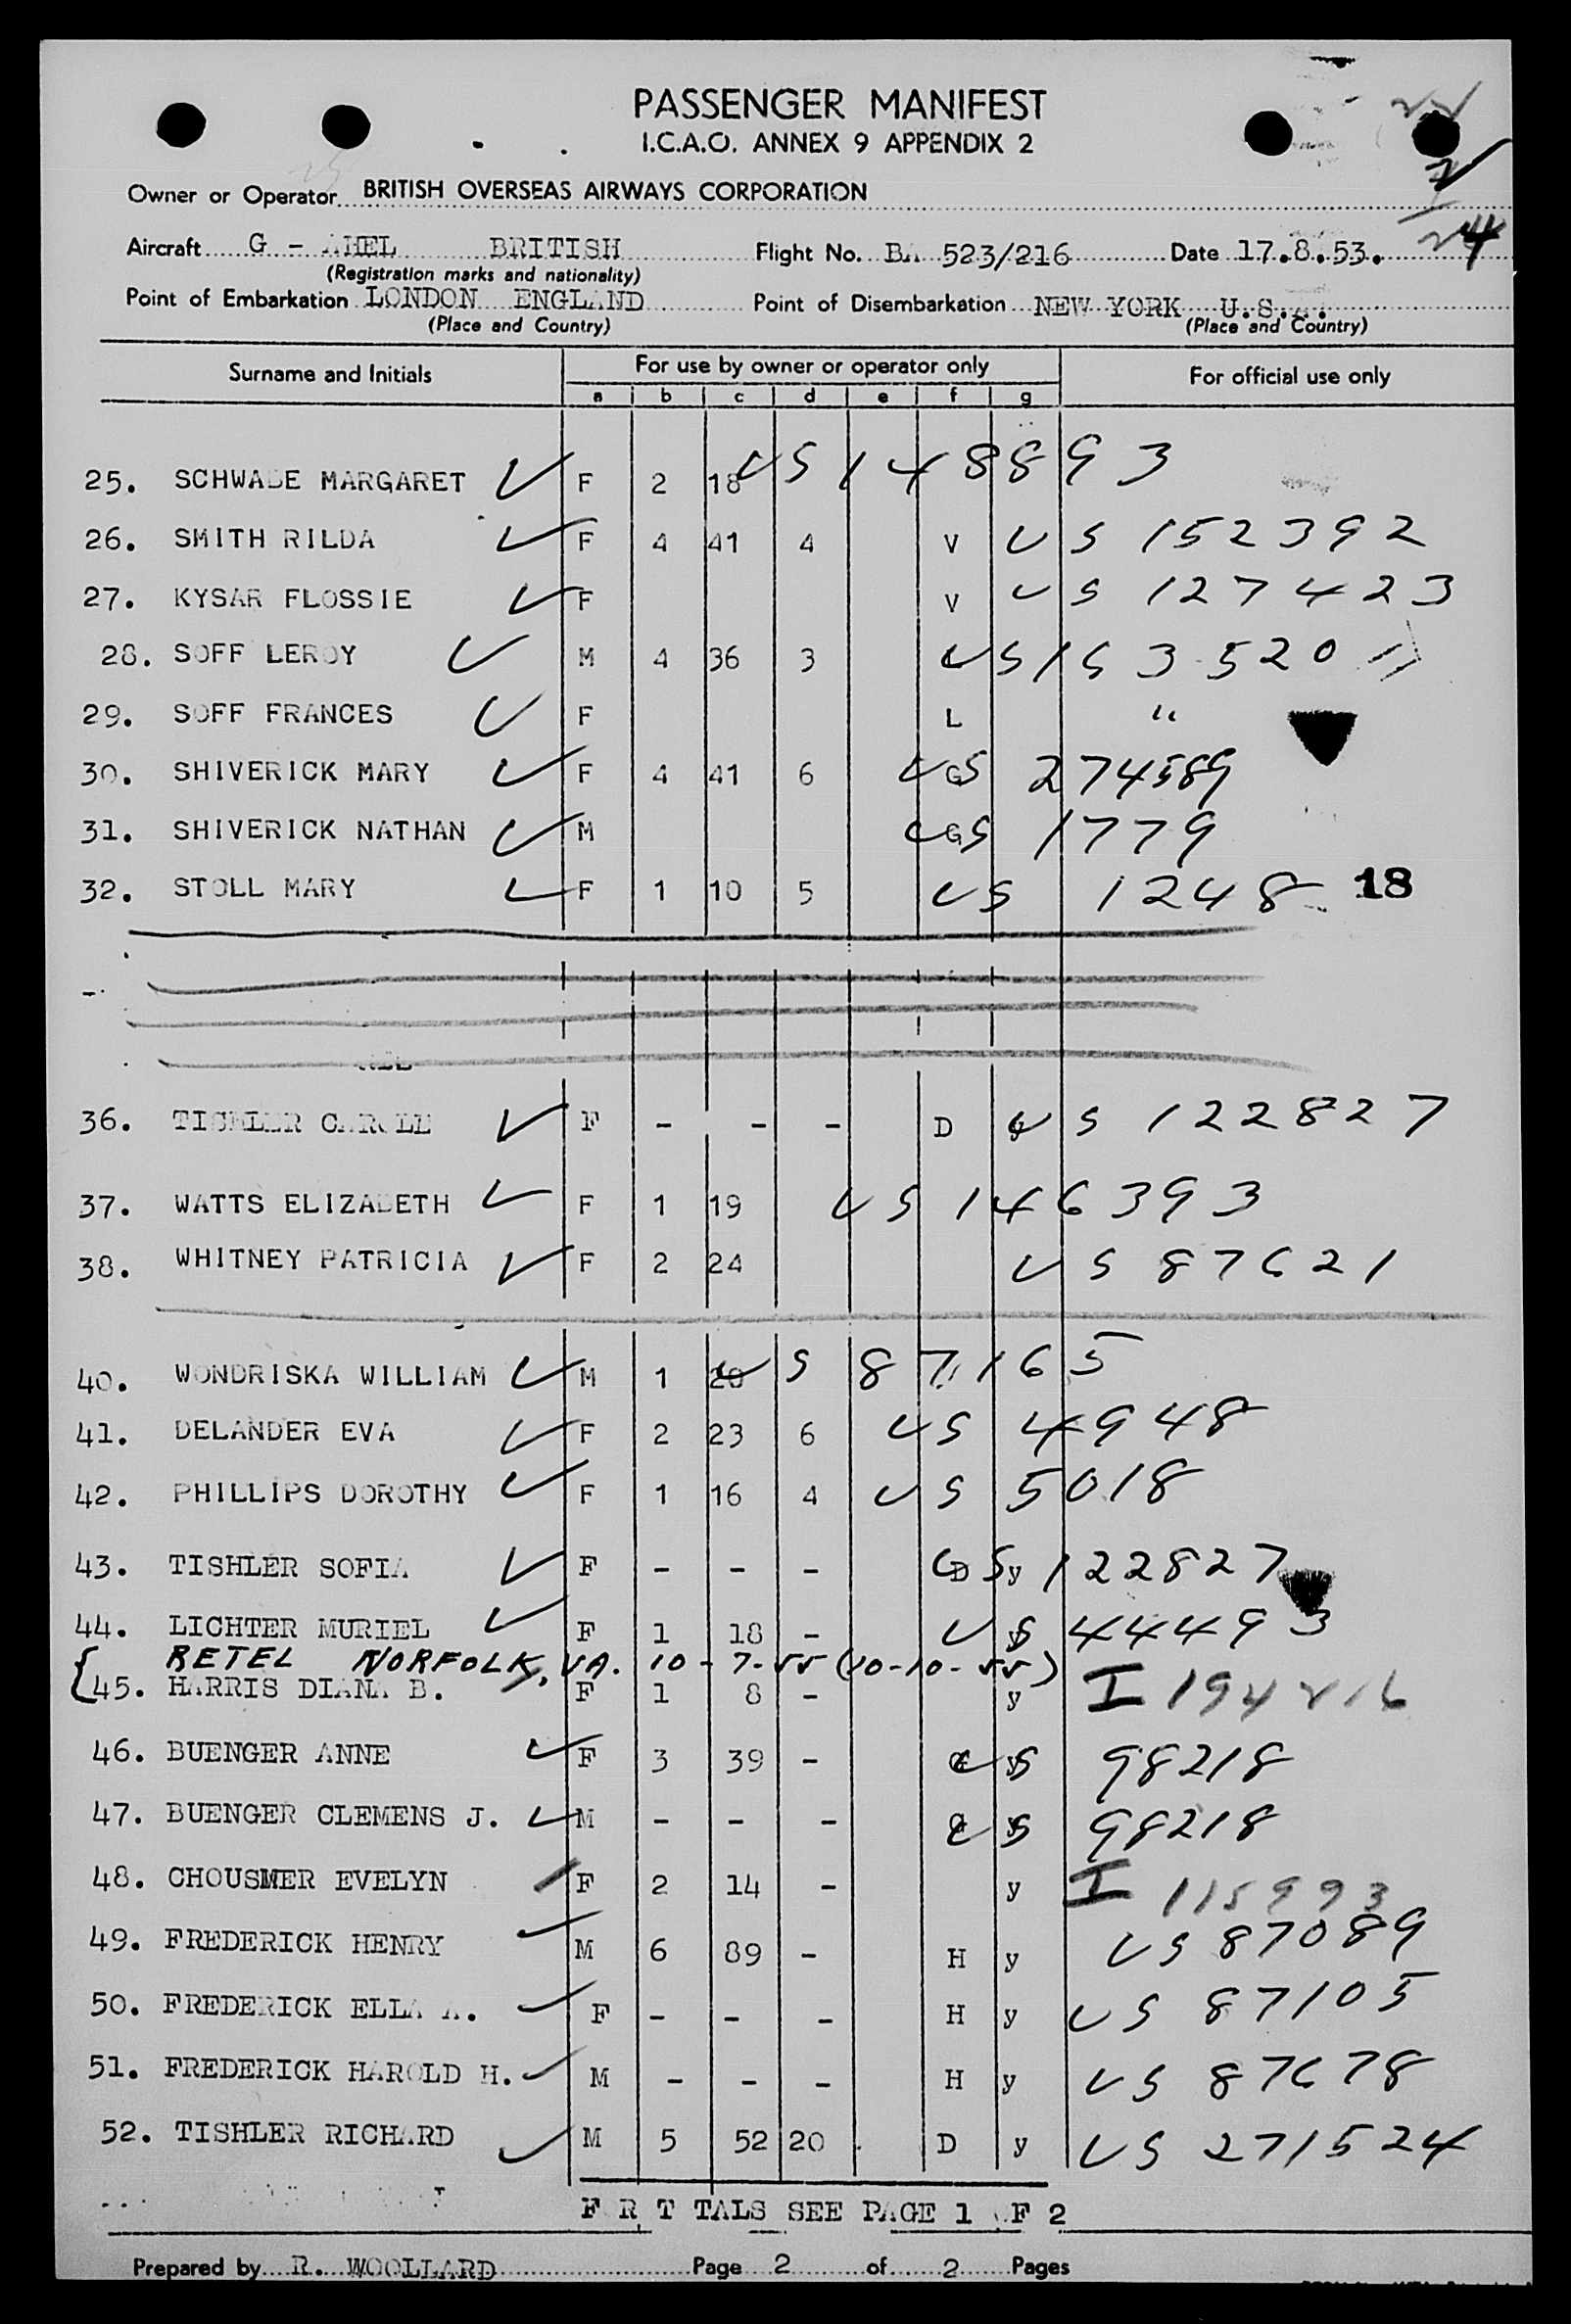 PASSENGER MANIFEST
I.C.A.O. ANNEX 9 APPENDIX 2
Owner or Operator BRITISH OVERSEAS AIRWAYS CORPORATION
24
Aircraft G - AHEL BRITISH Flight No. BA 523/216 Date 17.8.53.
(Registration marks and nationality)
Point of Embarkation LONDON ENGLAND Point of Disembarkation NEW YORK U.S.A.
(Place and Country) (Place and Country)
Surname and Initials For use by owner or operator only For official use only
a b c d e f g
25. SCHWABE MARGARET F 2 18 US 148893
26. SMITH RILDA F 4 41 4 V US 152392
27. KYSAR FLOSSIE F V US 127423
28. SOFF LEROY M 4 36 3 US 153520
29. SOFF FRANCES F L "
30. SHIVERICK MARY F 4 41 6 G US 274589
31. SHIVERICK NATHAN M G US 1779
32. STOLL MARY F 1 10 5 US 1248 18
36. TISHLER CAROLE F - - - D y US 122827
37. WATTS ELIZABETH F 1 19 US 146393
38. WHITNEY PATRICIA F 2 24 US 87621
40. WONDRISKA WILLIAM M 1 20 US 87165
41. DELANDER EVA F 2 23 6 US 4948
42. PHILLIPS DOROTHY F 1 16 4 US 5018
43. TISHLER SOFIA F - - - D y US 122827
44. LICHTER MURIEL F 1 18 - y US 44493
RETEL NORFOLK, VA. 10-7-55 (10-10-55)
45. HARRIS DIANA B. F 1 8 - y I 194216
46. BUENGER ANNE F 3 39 - G y US 98218
47. BUENGER CLEMENS J. M - - - G y US 98218
48. CHOUSMER EVELYN F 2 14 - y I 115993
49. FREDERICK HENRY M 6 89 - H y US 87089
50. FREDERICK ELLA A. F - - - H y US 87105
51. FREDERICK HAROLD H. M - - - H y US 87678
52. TISHLER RICHARD M 5 52 20 D y US 271524
F R T TALS SEE PAGE 1 OF 2
Prepared by R. WOOLLARD Page 2 of 2 Pages